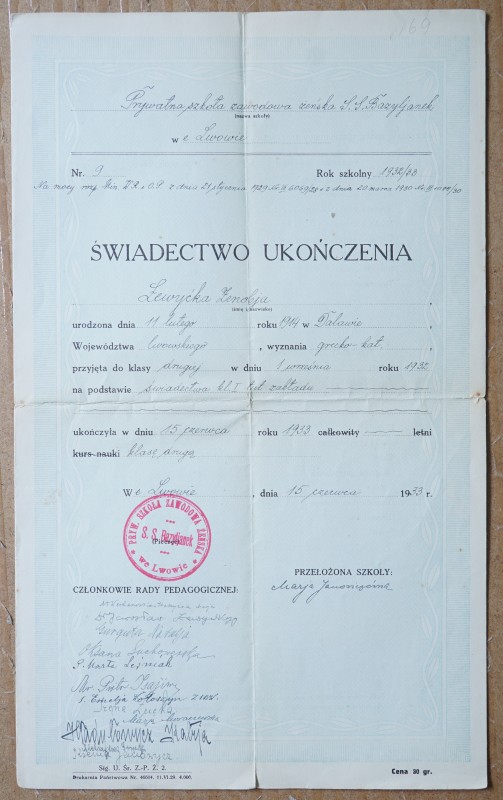 169
Prywatna szkoła zawodowa żeńska S.S. Bazyljanek
(nazwa szkoły)
we Lwowie
Nr. 9 Rok szkolny 1932/33
Na mocy rozp. Min. W.R. i O.P. z dnia 21 stycznia 1929 i z dnia marca 1930
ŚWIADECTWO UKOŃCZENIA
Lewycka Zenobja ,
(imię i nazwisko)
urodzona dnia 11 lutego roku 1914 w ,
Województwa lwowskiego , wyznania grecko-kat. ,
przyjęta do klasy drugiej w dniu 1 września roku 1932
na podstawie świadectwa kl. I tut. zakładu
ukończyła w dniu 15 czerwca roku 1933 całkowity letni
kurs nauki klasę drugą
We Lwowie , dnia 15 czerwca 1933 r.
PRYW. SZKOŁA ZAWODOWA ŻEŃSKA
S. S. Bazylianek
(Pieczęć)
we Lwowie
PRZEŁOŻONA SZKOŁY:
CZŁONKOWIE RADY PEDAGOGICZNEJ:
Marja
Dr.
Oksana
S. Marta Leśniak
Mr. Piotr
S. Emelja
Irena
Sig. U. Śr. Z.-P. Ż. 2.
Drukarnia Państwowa Nr. 46694. 11.VI.29. 4.000.
Cena 30 gr.